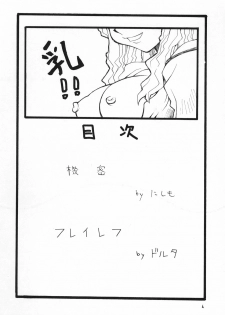 乳!!
目次
機密
by にしも
フレイレフ
by ドルタ